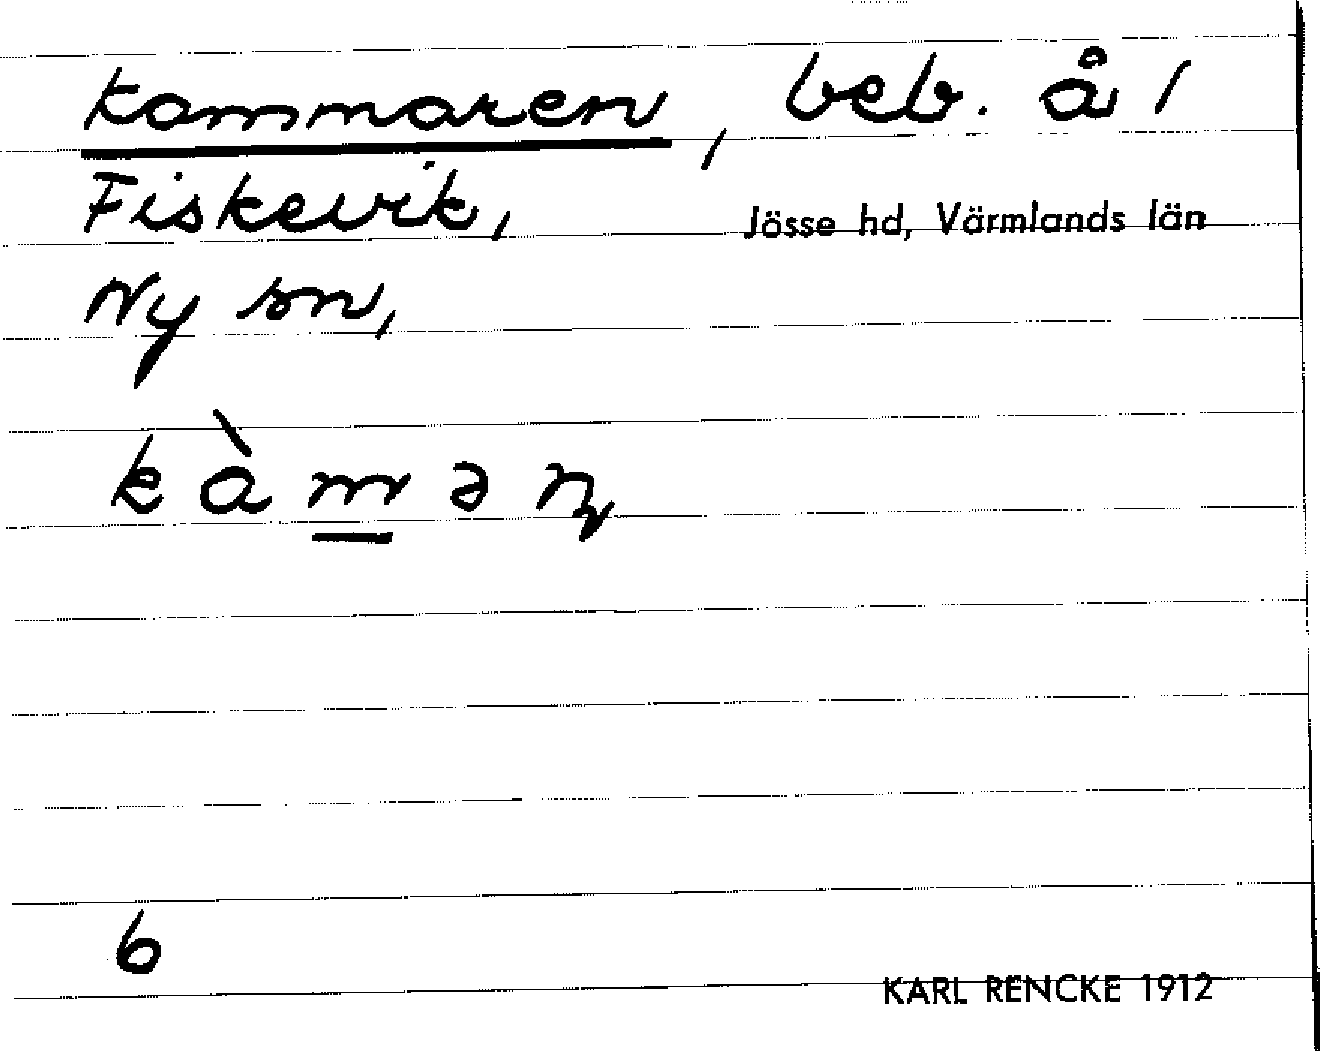 Kammaren, beb. å /
Fiskevik, Jösse hd, Värmlands län
Ny sn,
kàməɳ
6
KARL RENCKE 1912